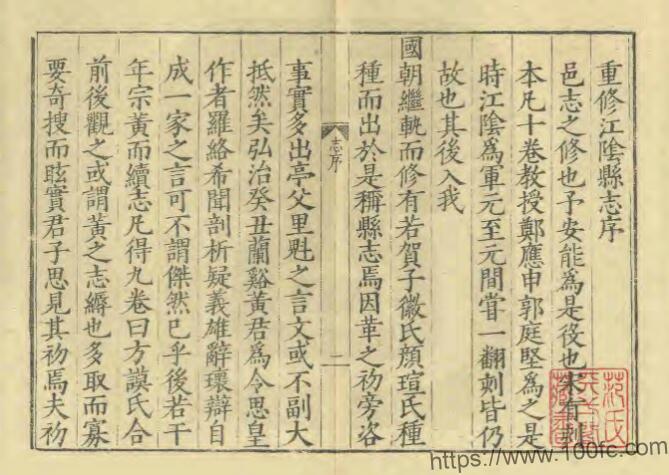 重修江陰縣志序
邑志之修也予安能爲是役也宋有刻
本凡十卷教授鄭應申郭庭堅爲之是
時江陰爲軍元至元間嘗一翻刻皆仍
故也其後入我
國朝繼軌而修有若賀子徽氏顔瑄氏種
種而出於是稱縣志焉因革之初旁咨
志序
事實多出亭父里魁之言文或不副大
抵然矣弘治癸丑蘭谿黄君爲令思皇
作者羅絡希聞剖析疑義雄辭瓌辯自
成一家之言可不謂傑然已乎後若干
年宗黄而續志凡得九卷曰方謨氏合
前後觀之或謂黄之志縟也多取而寡
要奇搜而眩實君子思見其初焉夫初
范氏
天一閣
藏書
https://www.100fc.com